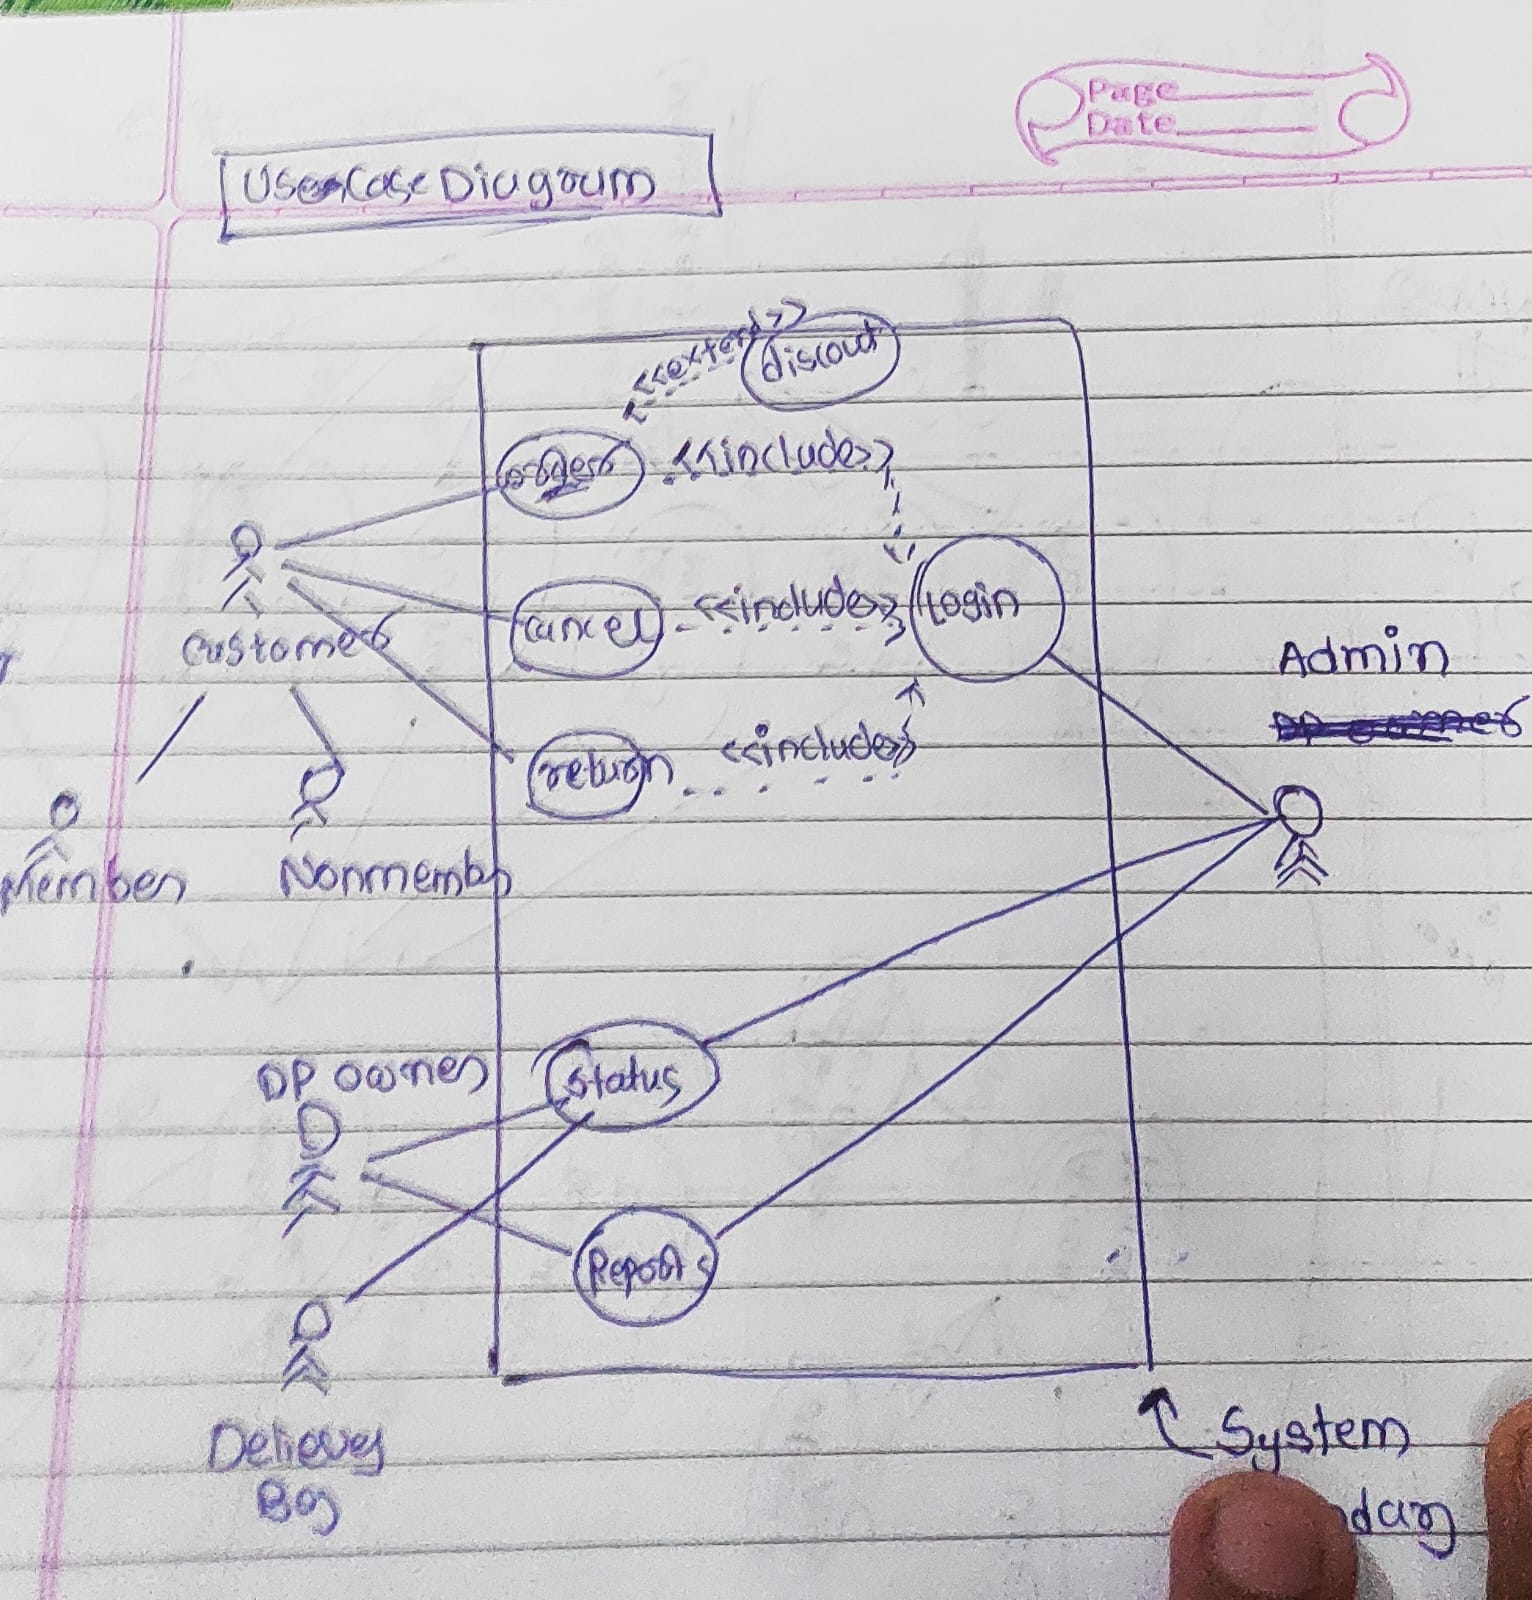 Page
Date
Usecase Diagram
<<extend>>
discout
order
<<include>>
Customer
cancel
<<include>>
Login
Admin
return
<<include>>
Member
Nonmember
DP owner
Status
Reports
Delievey
Boy
System
dary